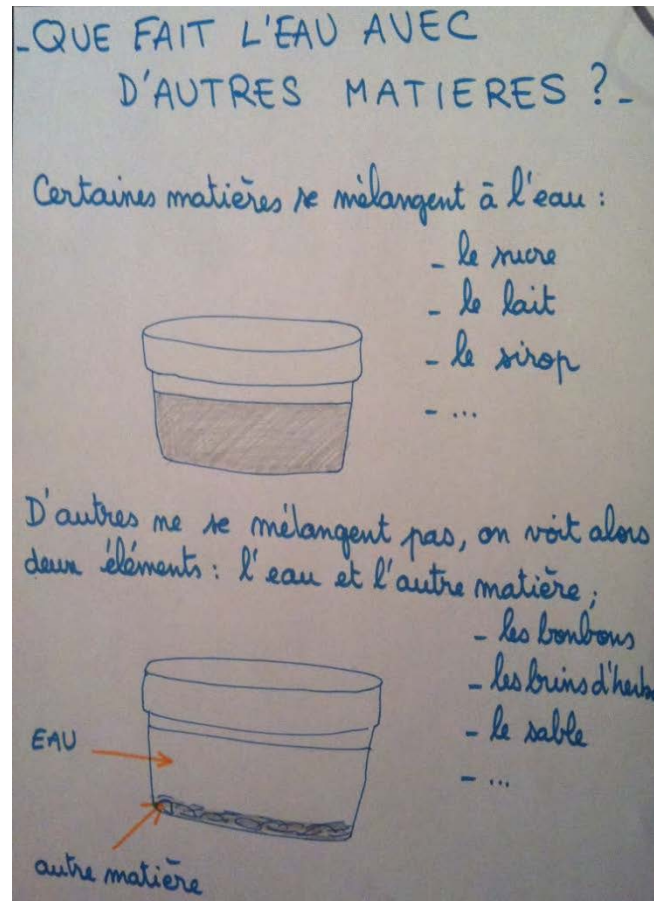 -QUE FAIT L'EAU AVEC
D'AUTRES MATIERES ?-
Certaines matières se mélangent à l'eau :
- le sucre
- le lait
- le sirop
- ...
D'autres ne se mélangent pas, on voit alors
deux éléments : l'eau et l'autre matière ;
- les bonbons
- les brins d'herbe
- le sable
- ...
EAU
autre matière